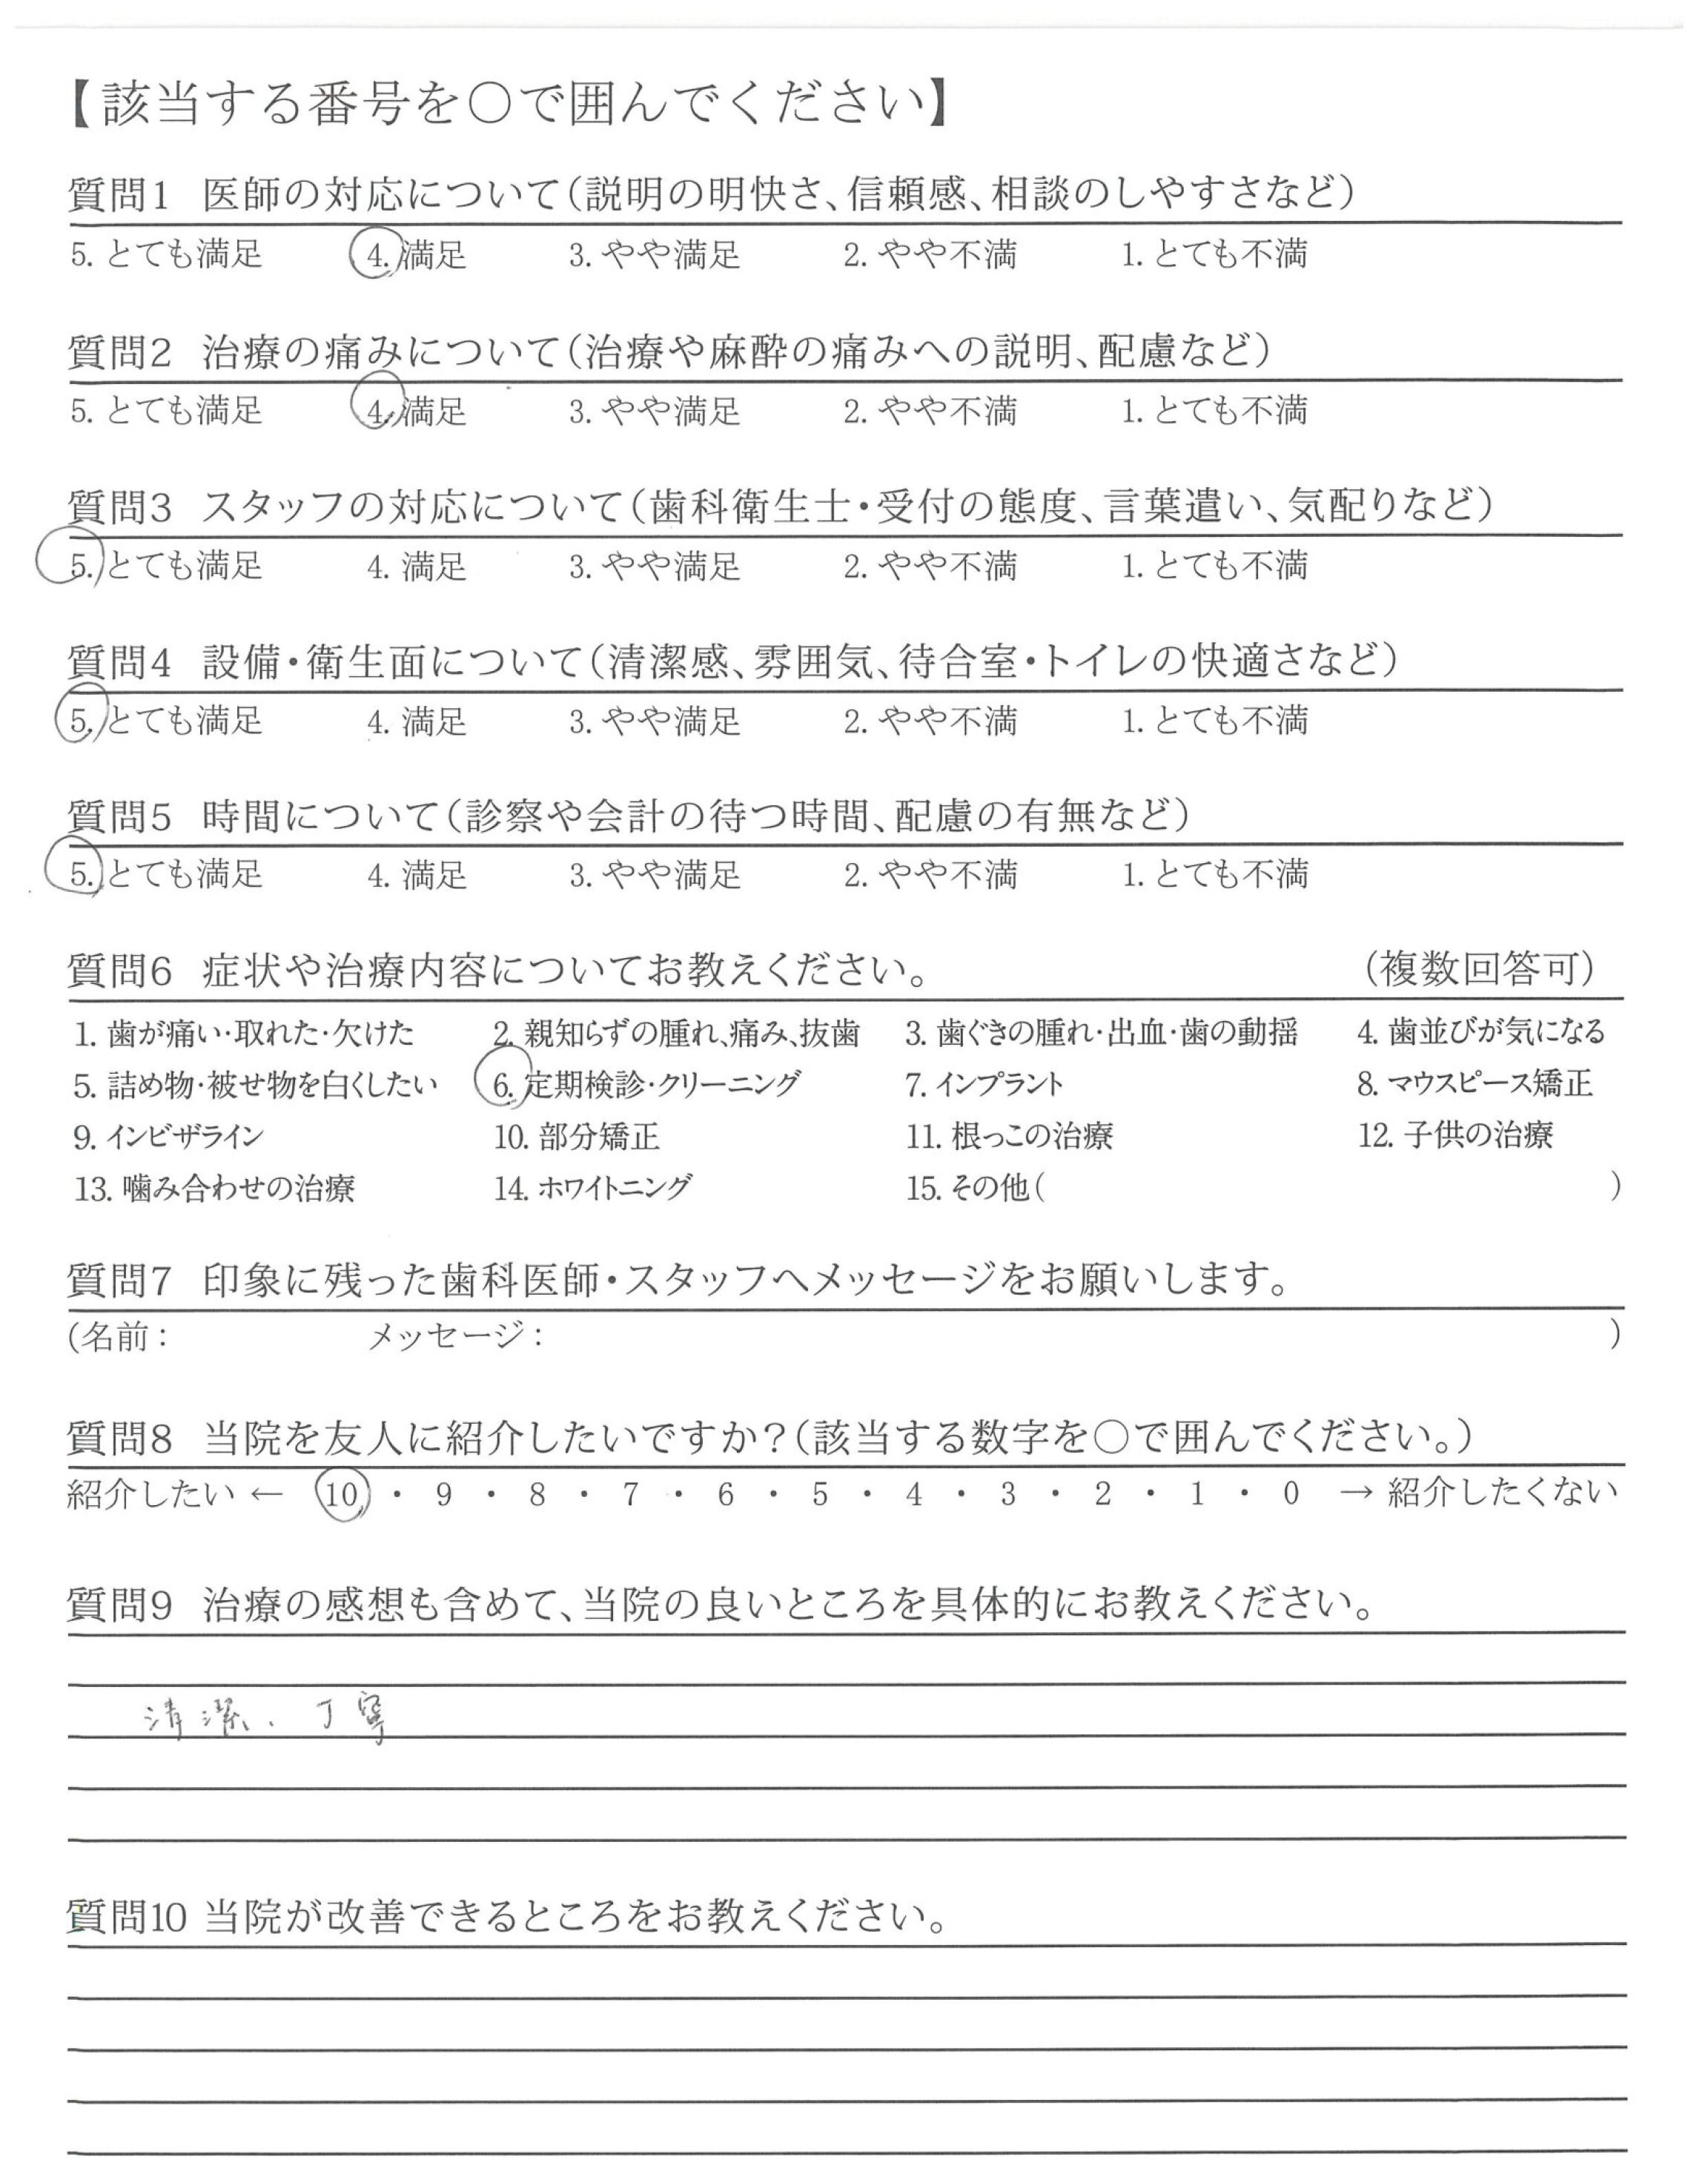 【該当する番号を○で囲んでください】
質問1 医師の対応について(説明の明快さ、信頼感、相談のしやすさなど)
5. とても満足 4. 満足 3. やや満足 2. やや不満 1. とても不満
質問2 治療の痛みについて(治療や麻酔の痛みへの説明、配慮など)
5. とても満足 4. 満足 3. やや満足 2. やや不満 1. とても不満
質問3 スタッフの対応について(歯科衛生士・受付の態度、言葉遣い、気配りなど)
5. とても満足 4. 満足 3. やや満足 2. やや不満 1. とても不満
質問4 設備・衛生面について(清潔感、雰囲気、待合室・トイレの快適さなど)
5. とても満足 4. 満足 3. やや満足 2. やや不満 1. とても不満
質問5 時間について(診察や会計の待つ時間、配慮の有無など)
5. とても満足 4. 満足 3. やや満足 2. やや不満 1. とても不満
質問6 症状や治療内容についてお教えください。 (複数回答可)
1. 歯が痛い・取れた・欠けた 2. 親知らずの腫れ、痛み、抜歯 3. 歯ぐきの腫れ・出血・歯の動揺 4. 歯並びが気になる
5. 詰め物・被せ物を白くしたい 6. 定期検診・クリーニング 7. インプラント 8. マウスピース矯正
9. インビザライン 10. 部分矯正 11. 根っこの治療 12. 子供の治療
13. 噛み合わせの治療 14. ホワイトニング 15. その他( )
質問7 印象に残った歯科医師・スタッフへメッセージをお願いします。
(名前: メッセージ: )
質問8 当院を友人に紹介したいですか?(該当する数字を○で囲んでください。)
紹介したい ← 10 ・ 9 ・ 8 ・ 7 ・ 6 ・ 5 ・ 4 ・ 3 ・ 2 ・ 1 ・ 0 → 紹介したくない
質問9 治療の感想も含めて、当院の良いところを具体的にお教えください。
清潔、丁寧
質問10 当院が改善できるところをお教えください。